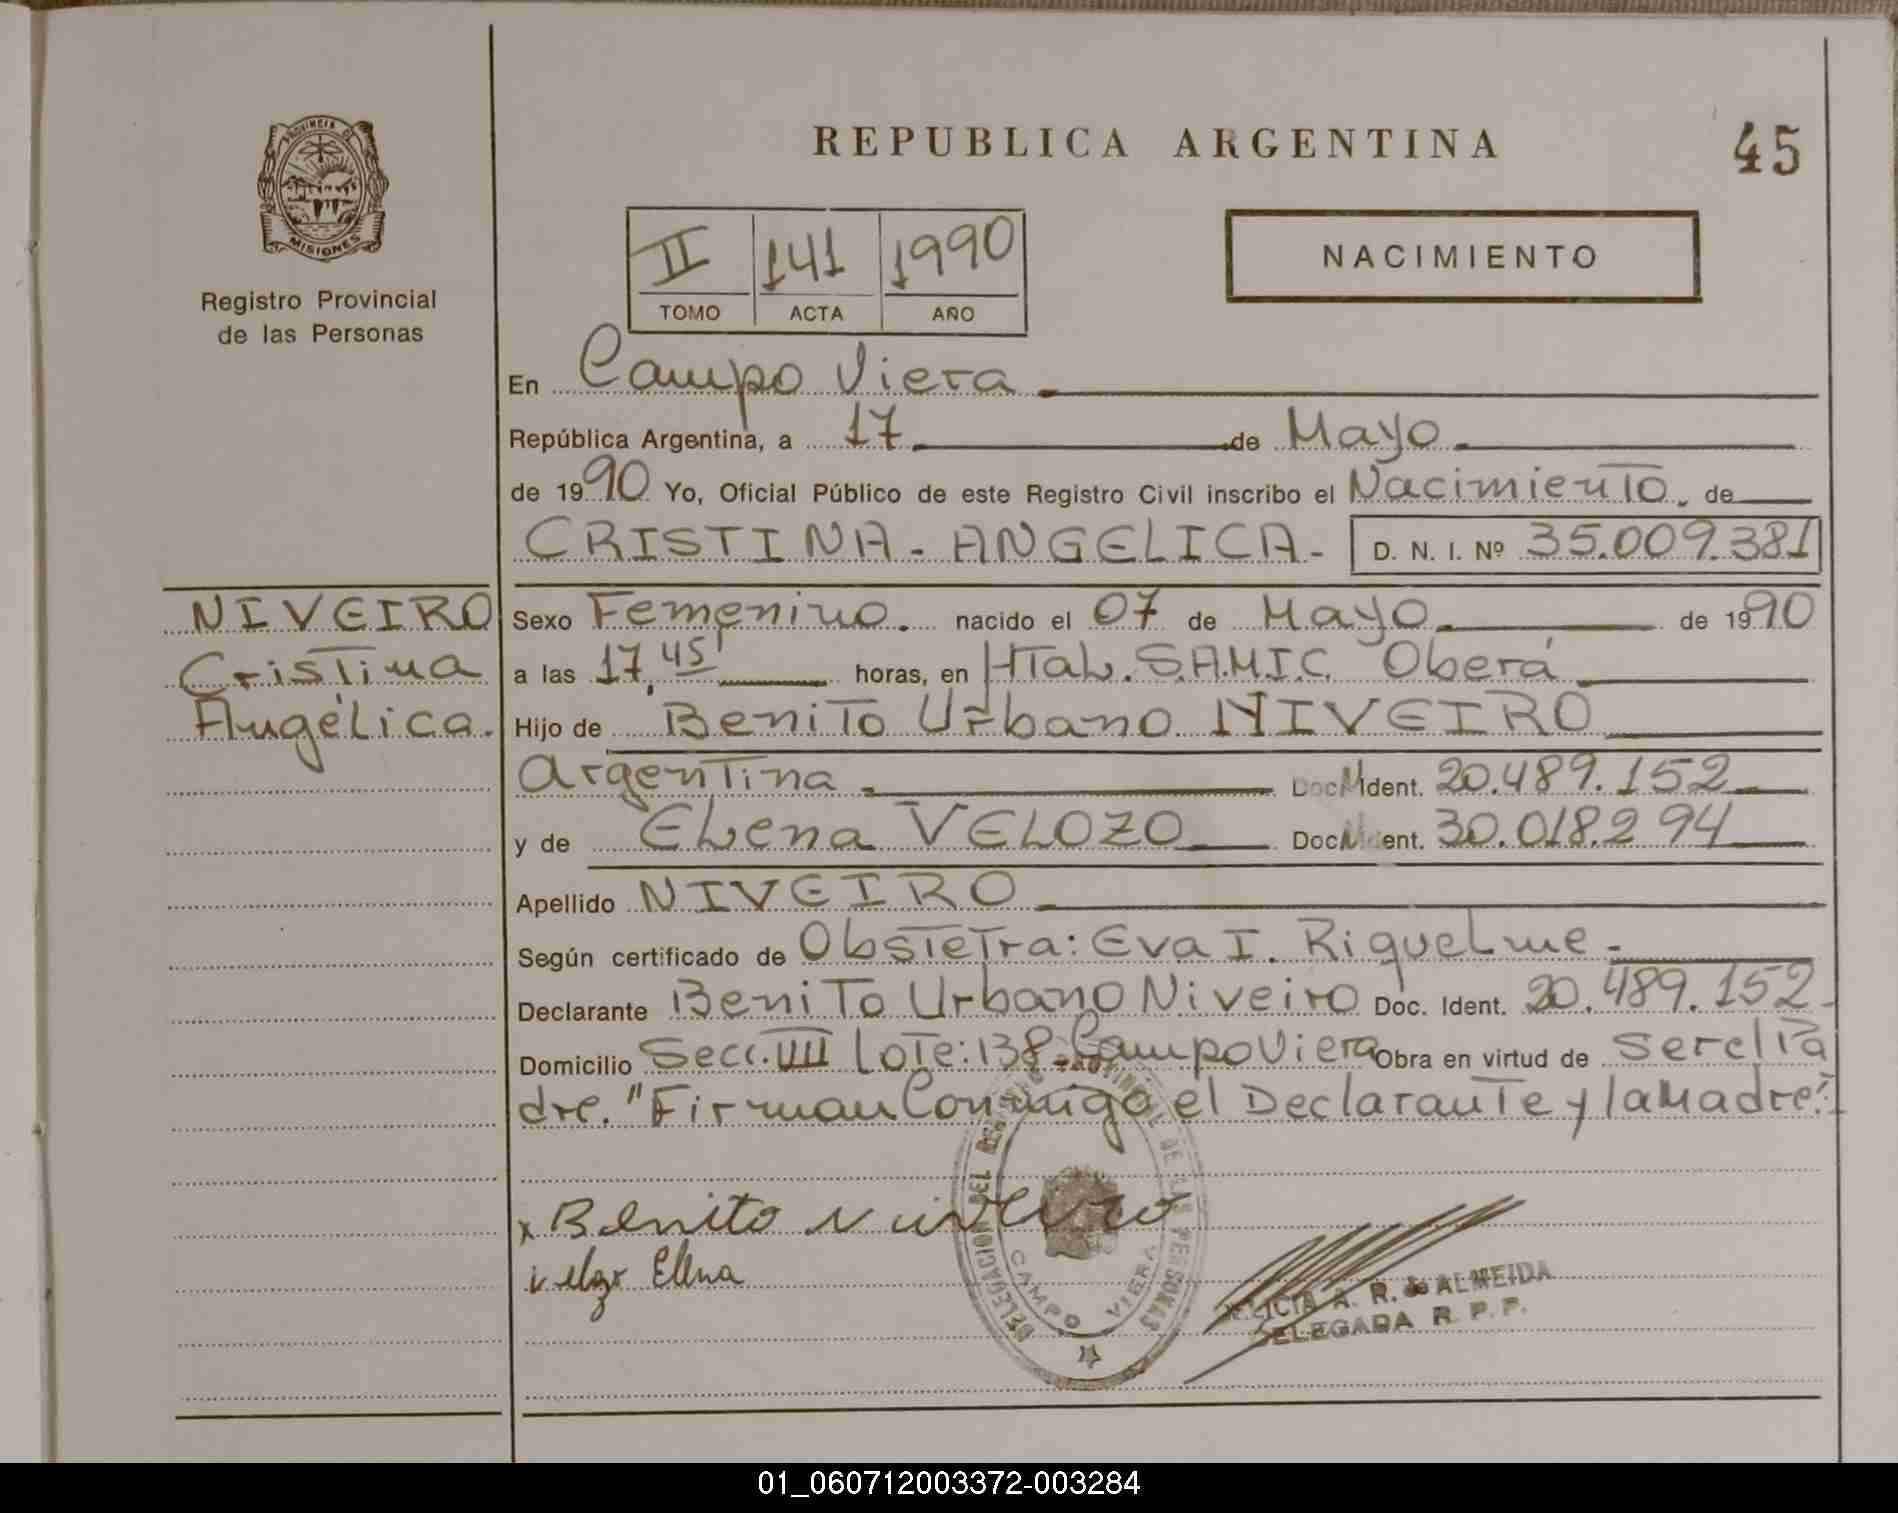 PROVINCIA DE
MISIONES
Registro Provincial
de las Personas
REPUBLICA ARGENTINA
45
II 141 1990
TOMO ACTA AÑO
NACIMIENTO
En Campo Viera
República Argentina, a 17 de Mayo
de 1990 Yo, Oficial Público de este Registro Civil inscribo el Nacimiento, de
CRISTINA - ANGELICA - D. N. I. Nº 35.009.381
NIVEIRO
Cristina
Angélica.
Sexo Femenino. nacido el 07 de Mayo de 1990
a las 17,45' horas, en Htal. S.A.M.I.C. Oberá
Hijo de Benito Urbano NIVEIRO
Argentina Doc. Ident. 20.489.152
y de Elena VELOZO Doc. ent. 30.018.294
Apellido NIVEIRO
Según certificado de Obstetra: Eva I. Riquelme -
Declarante Benito Urbano Niveiro Doc. Ident. 20.489.152-
Domicilio Secc. VIII Lote: 138 - Campo Viera Obra en virtud de ser el Pa
dre. "Firman Conmigo el Declarante y la Madre."
x Benito niveiro
velzo Elena
DELEGACION DEL REGISTRO PROVINCIAL DE LAS PERSONAS
CAMPO VIERA
A. R. de ALMEIDA
DELEGADA R. P. P.
01_060712003372-003284